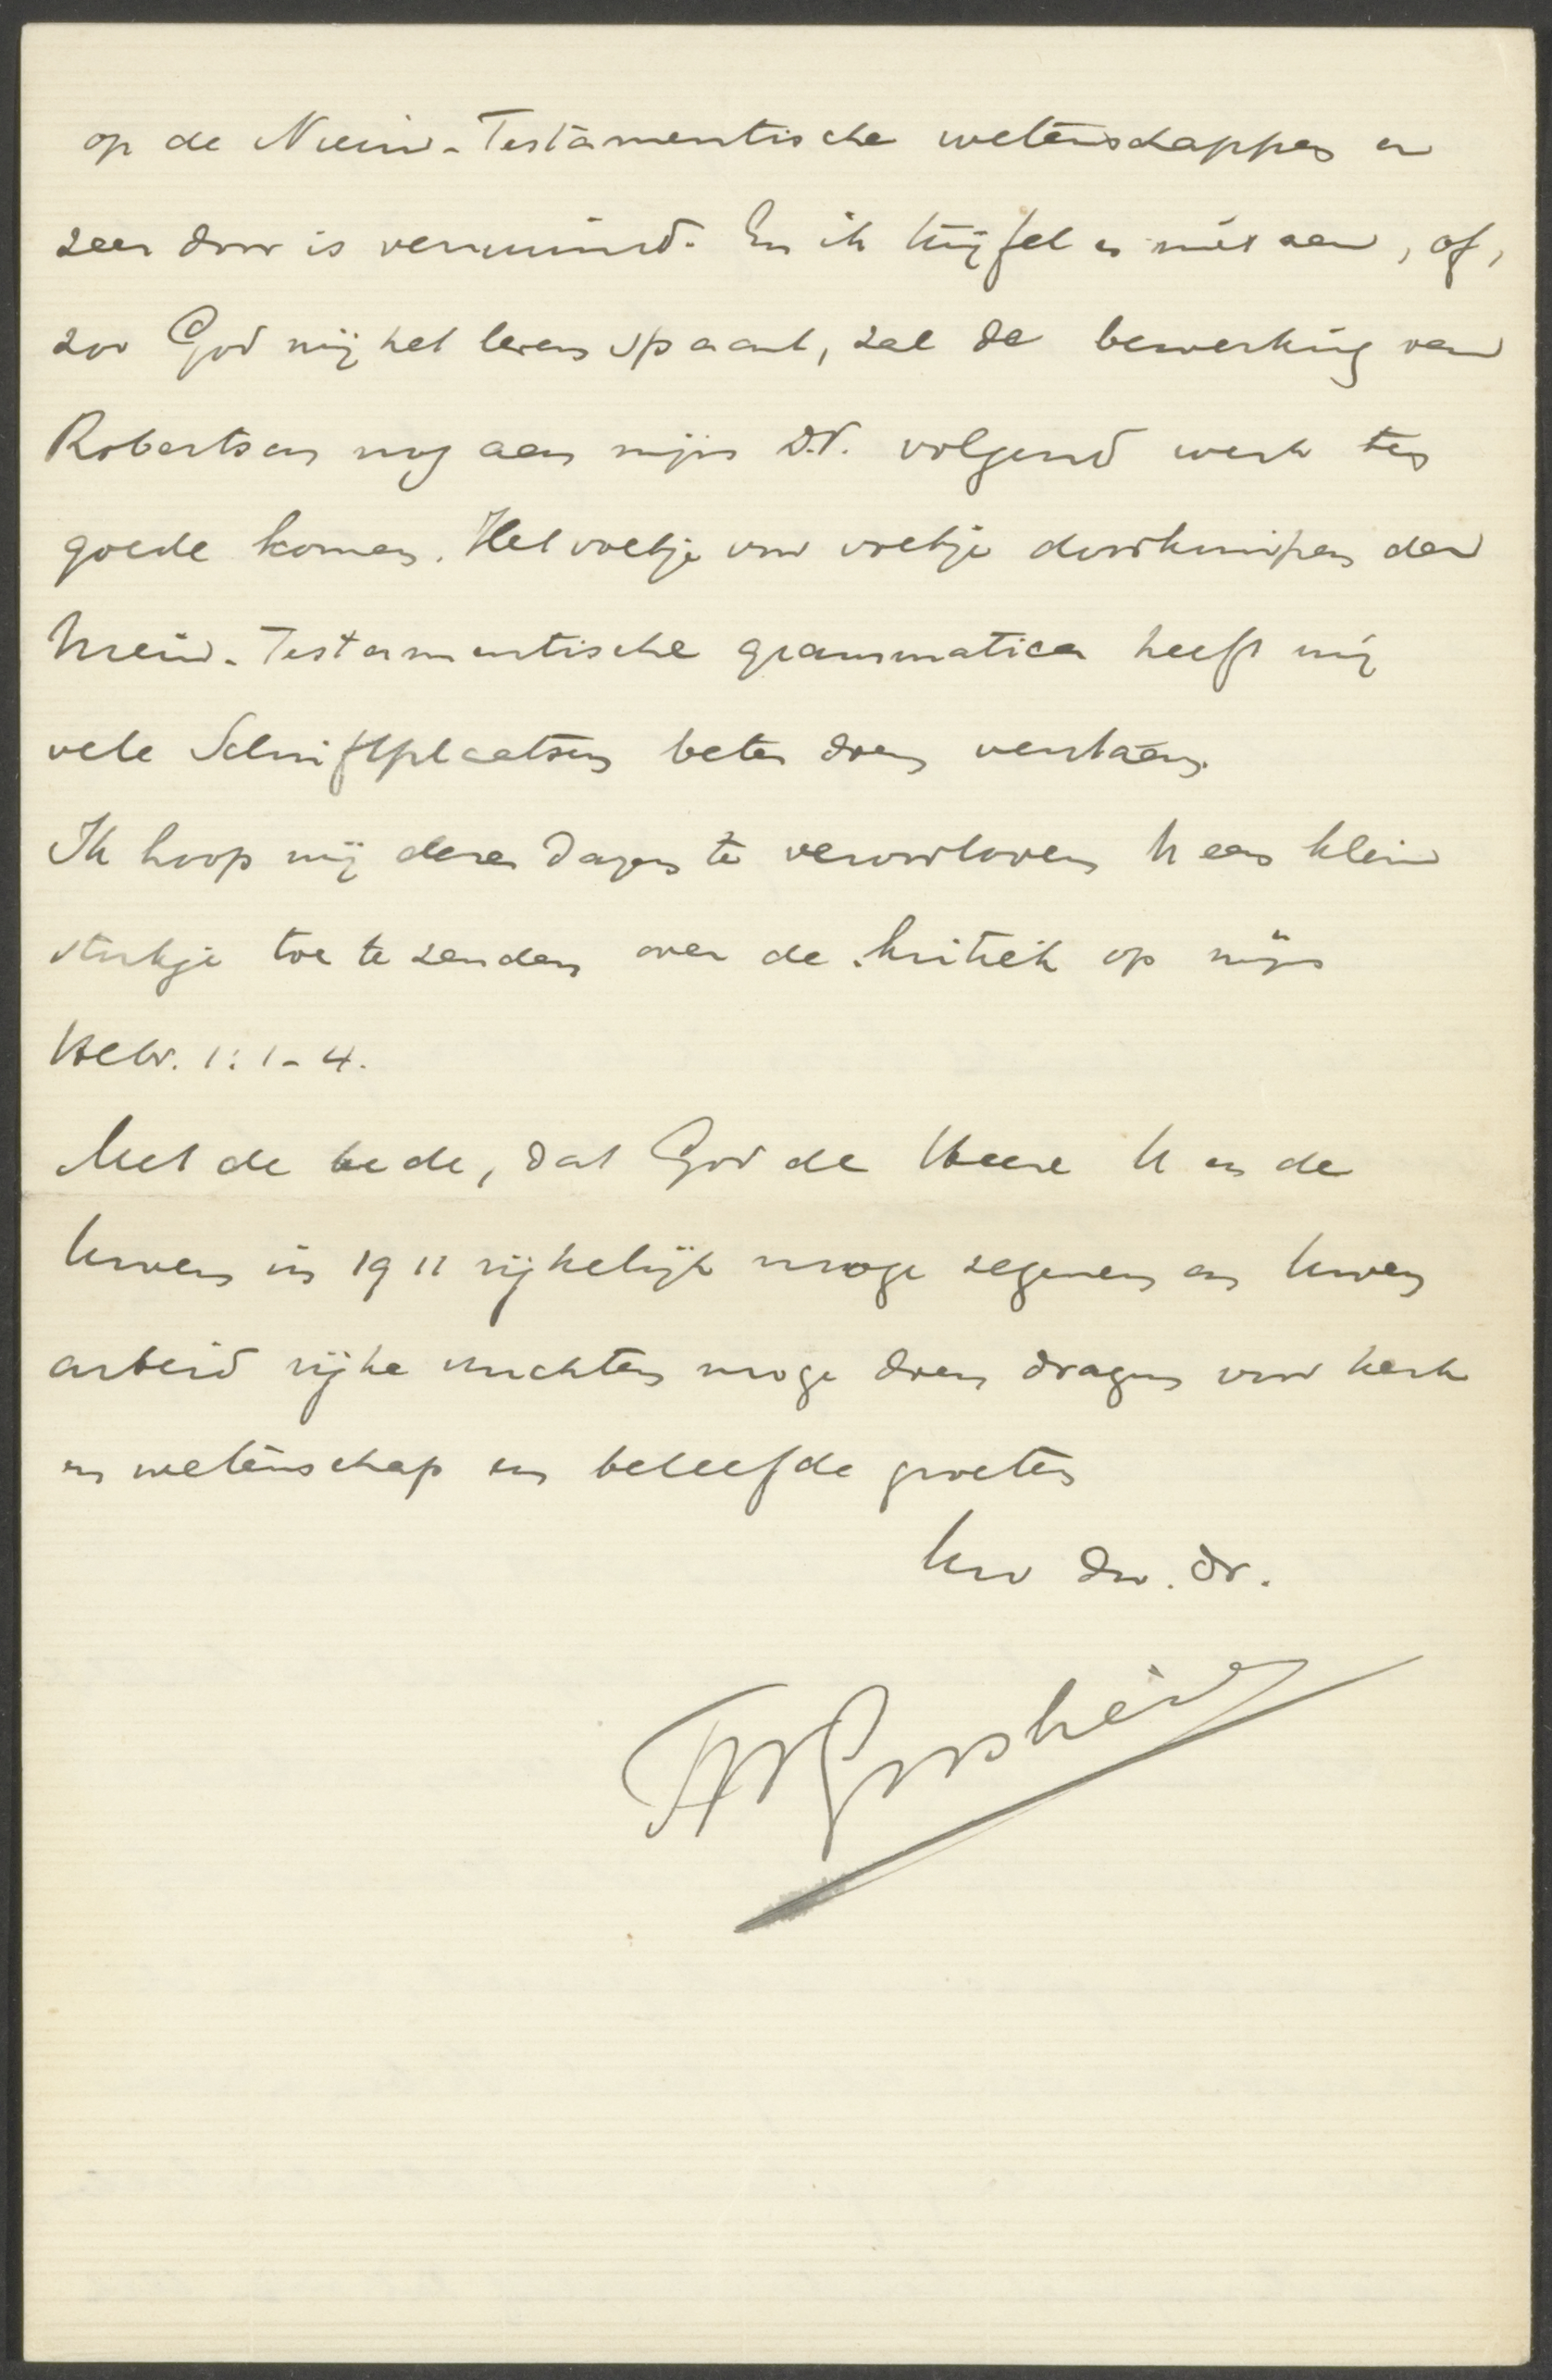 op de Nieuw-Testamentische wetenschappen er
zeer door is verruimd. En ik twijfel er niet aan, of,
zoo God mij het leven spaart, zal de bewerking van
Robertson nog aan mijn D.V. volgend werk ten
goede komen. Het voetje voor voetje doorkruipen der
Nieuw-Testamentische grammatica heeft mij
vele Schriftplaatsen beter doen verstaan.
Ik hoop mij dezer dagen te veroorloven U een klein
stukje toe te zenden over de kritiek op mijn
Hebr. 1:1-4.
Met de bede, dat God de Heere U en de
Uwen in 1911 rijkelijk moge zegenen en Uwen
arbeid rijke vruchten moge doen dragen voor kerk
en wetenschap en beleefde groeten
Uw dw. dr.
FW Grosheide